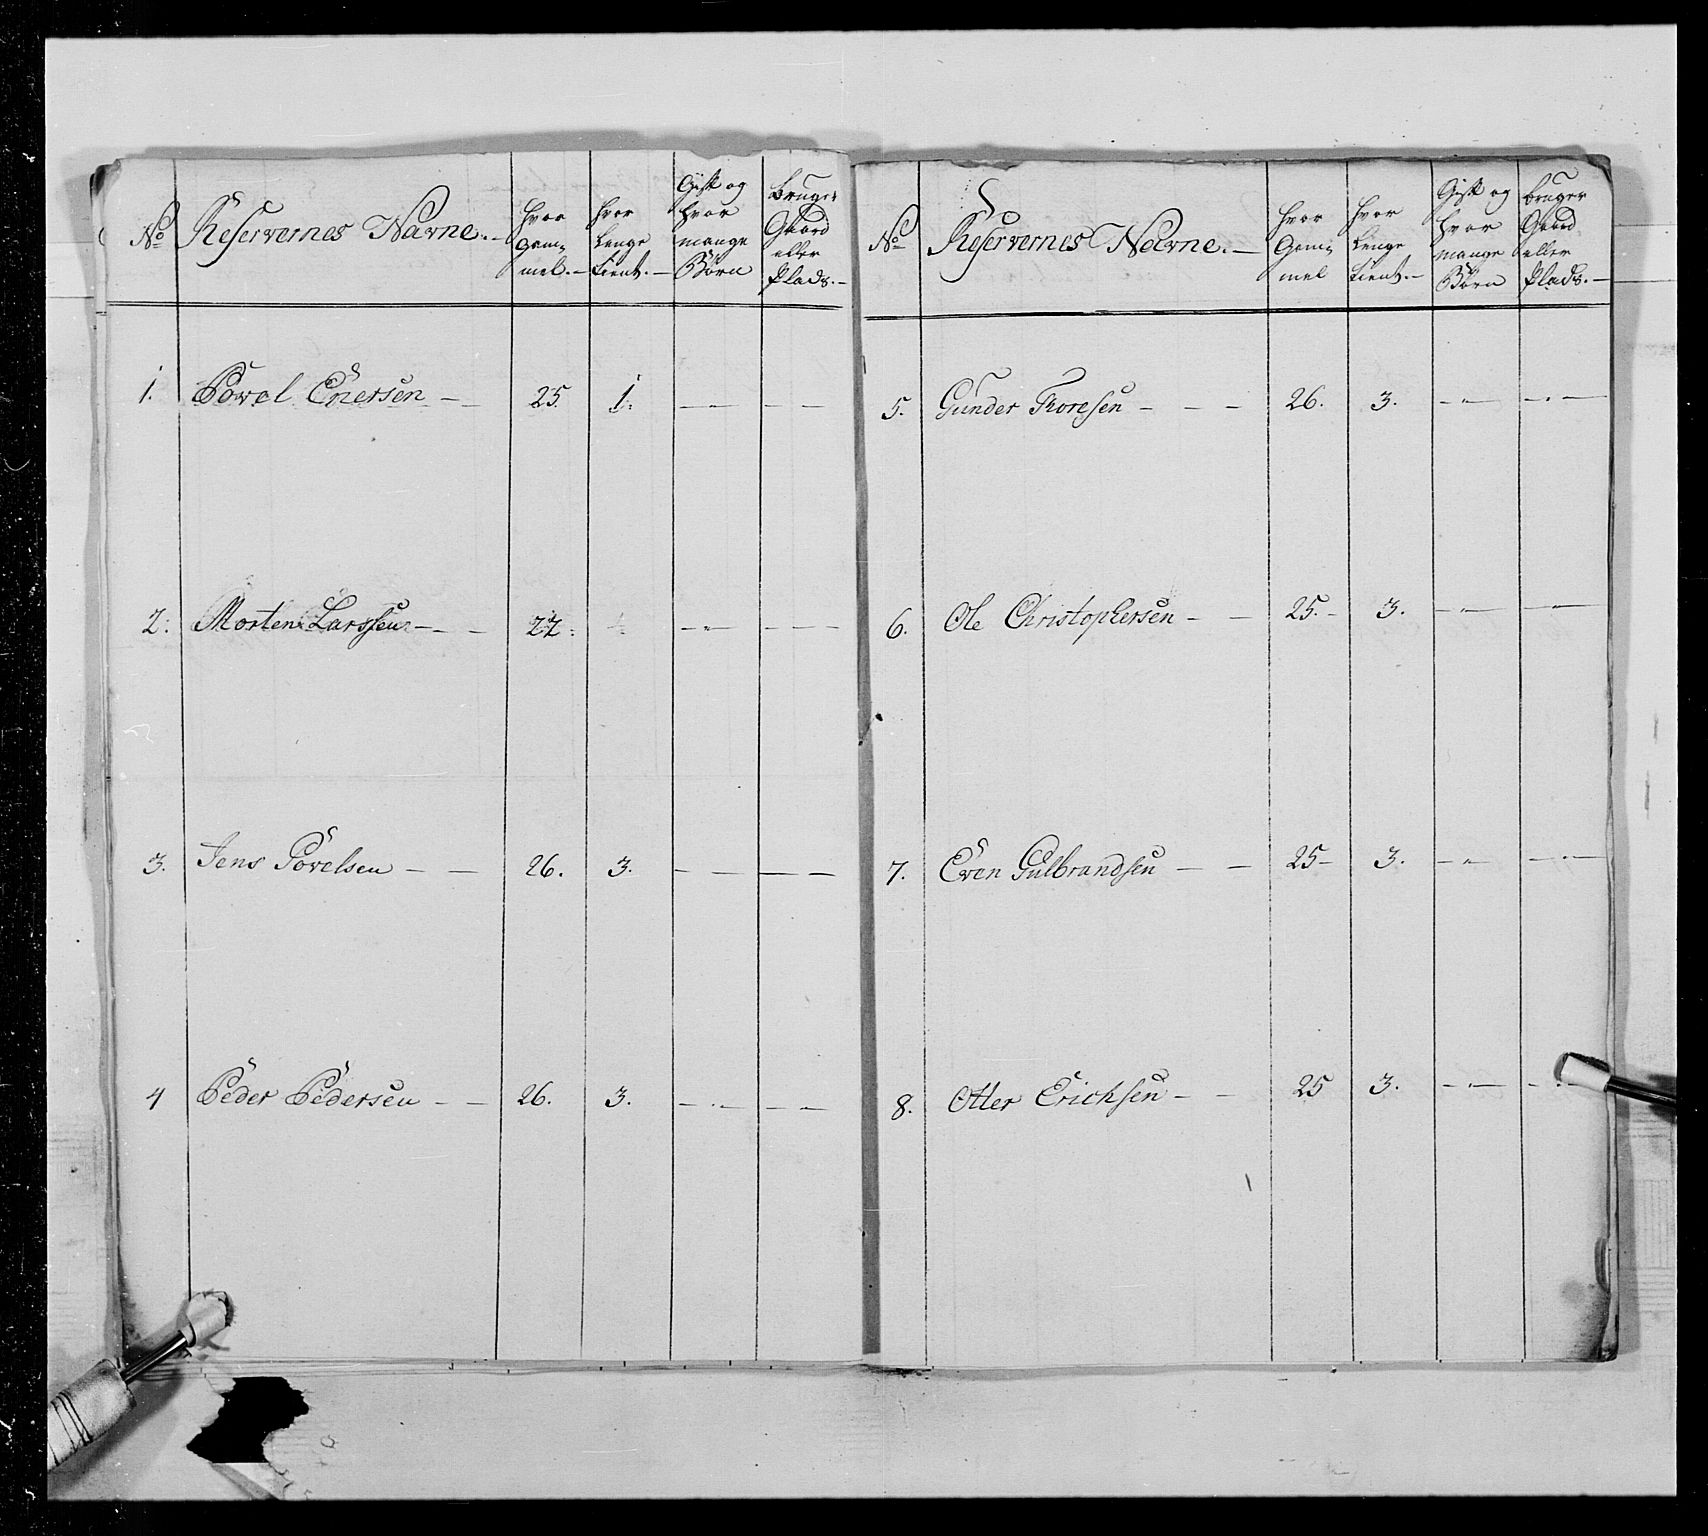 No Reservernes Navne. hvor Gam= mel. hvor Lenge tient. Gift og hvor mange Børn bruger Gaard eller Plads.
1. Povel Enersen 25. 1.
2. Morten Larssen 22.
3. Jens Povelsen 26. 3.
4 Peder Pedersen 26. 3.
No Reservernes Navne. hvor Gam= mel hvor Lenge tient. Gift og hvor mange Børn bruger Gaard eller Plads.
5. Gunder Thoresen 26. 3.
6. Ole Christophersen 25. 3.
7. Even Gulbrandsen 25 3.
8. Otter Erichsen 25 3.